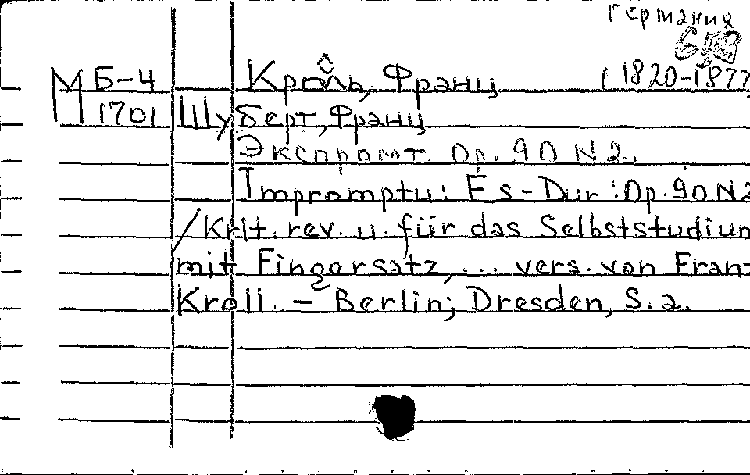 Германия
М Б-4 Кроль, Франц (1820-1877
1701 Шуберт, Франц
Экспромт. Op. 90 N 2.
Impromptu: Es-Dur: Op. 90 N 2
/ Krit. rev. u. für das Selbststudium
mit Fingersatz, ... vers. von Franz
Kroll. – Berlin; Dresden, S. a.